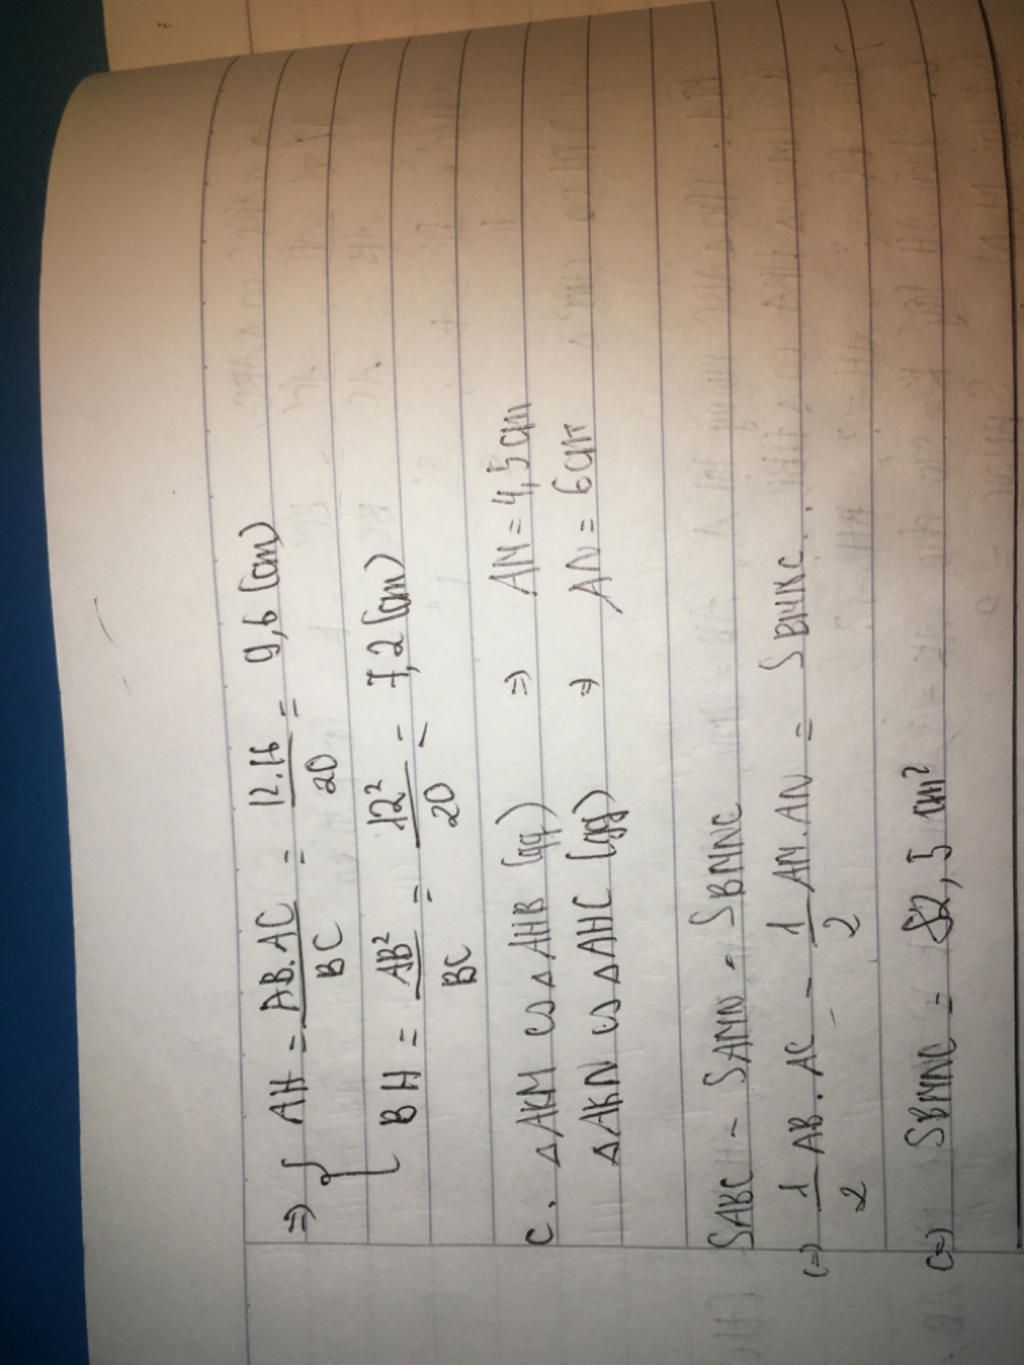 => { AH = AB.AC / BC = 12.16 / 20 = 9,6 (cm)
BH = AB² / BC = 12² / 20 = 7,2 (cm)
c. △AKM ∽ △AHB (gg) => AM = 4,5 cm
△AKN ∽ △AHC (gg) => AN = 6 cm
SABC - SAMN = SBMNC
(=) 1/2 AB . AC - 1/2 AM . AN = SBMNC.
(=) SBMNC = 82,5 cm²